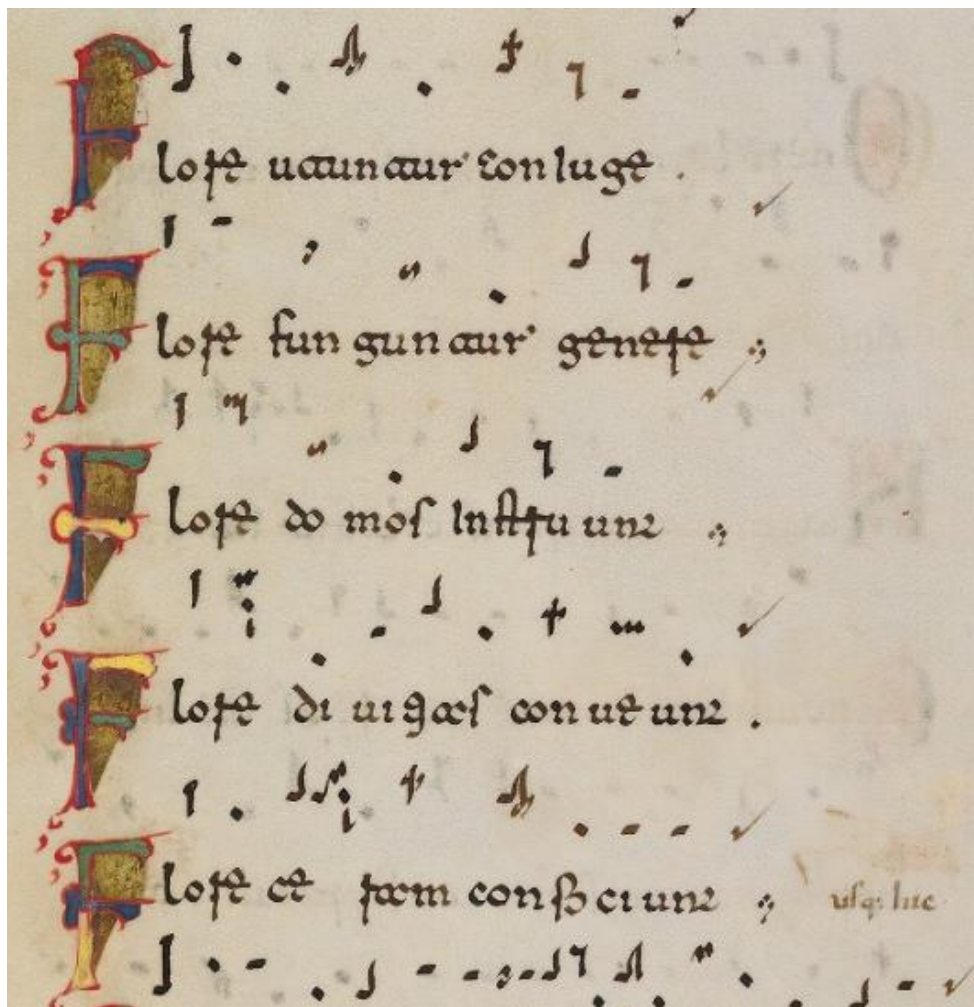 Flore utuntur coniuge .
Flore fun gun tur genere
Flore do mos Instru unt
Flore di uitias con ue unt .
Flore ce ram conficiunt usq; huc